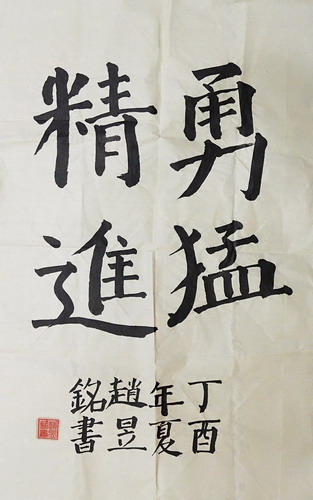 勇猛
精進
丁酉
年夏
趙昱
銘書